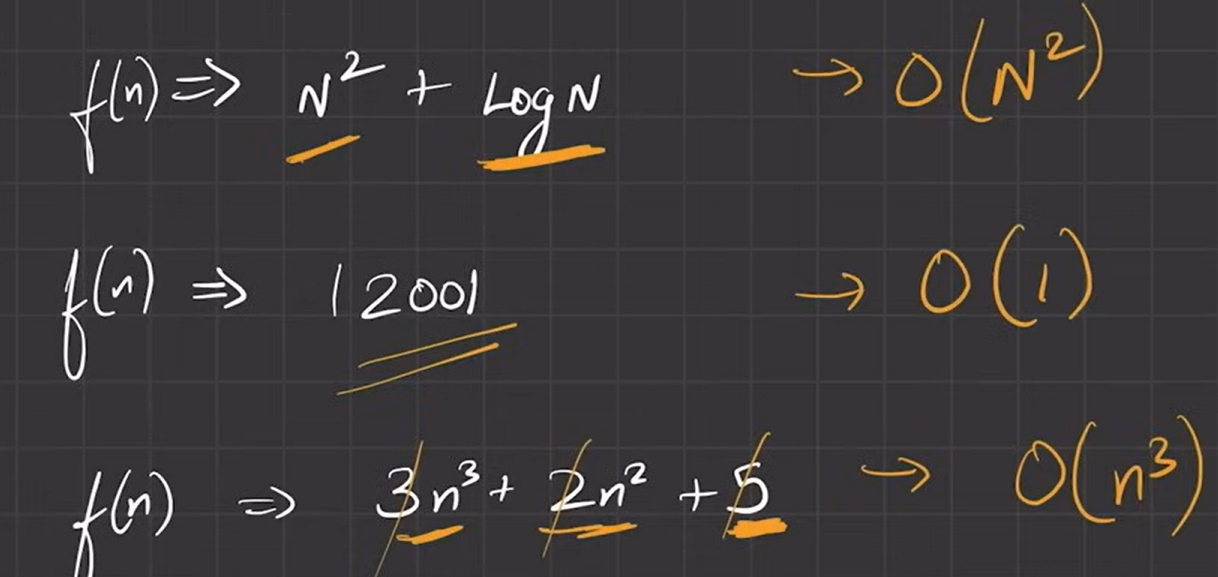 f(n) => N² + Log N → O(N²)
f(n) => 12001 → O(1)
f(n) => 3n³ + 2n² + 5 → O(n³)